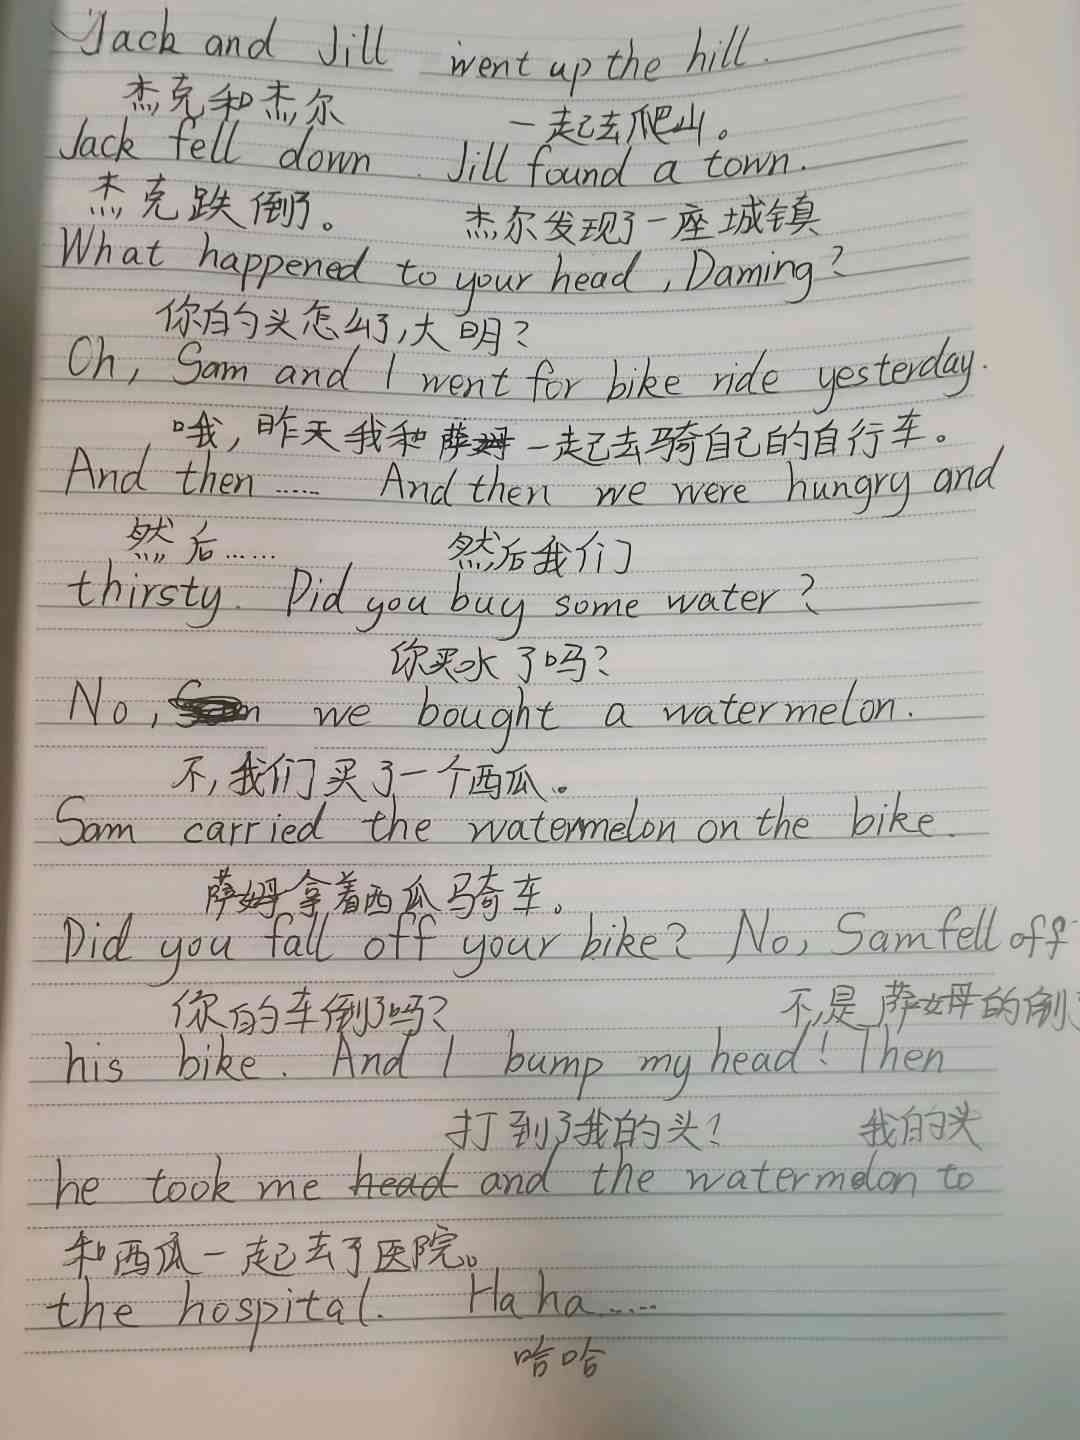 Jack and Jill went up the hill.
杰克和杰尔 一起去爬山。
Jack fell down. Jill found a town.
杰克跌倒了。 杰尔发现了一座城镇
What happened to your head, Daming?
你的头怎么了,大明?
Oh, Sam and I went for bike ride yesterday.
哦,昨天我和萨姆一起去骑自己的自行车。
And then …… And then we were hungry and
然后…… 然后我们
thirsty. Did you buy some water?
你买水了吗?
No, we bought a watermelon.
不,我们买了一个西瓜。
Sam carried the watermelon on the bike.
萨姆拿着西瓜骑车。
Did you fall off your bike? No, Sam fell off
你的车倒了吗? 不,是萨姆的倒了
his bike. And I bump my head! Then
打到了我的头? 我的头
he took me head and the watermelon to
和西瓜一起去了医院。
the hospital. Ha ha……
哈哈